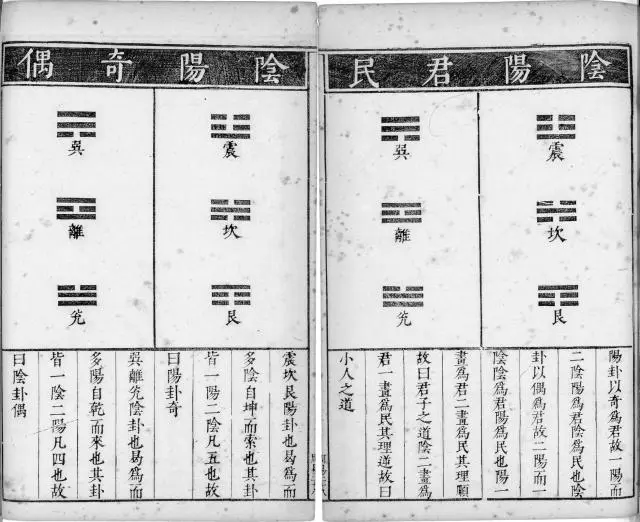 陰陽君民
震
坎
艮
巽
離
兊
陽卦以奇爲君故一陽而
二陰陽爲君陰爲民也陰
卦以偶爲君故二陽而一
陰陰爲君陽爲民也陽一
畫爲君二畫爲民其理順
故曰君子之道陰二畫爲
君一畫爲民其理逆故曰
小人之道
陰陽奇偶
震
坎
艮
巽
離
兊
震坎艮陽卦也易爲而
多陰自坤而索也其卦
皆一陽二陰凡五也故
曰陽卦奇
巽離兊陰卦也易爲而
多陽自乾而來也其卦
皆一陰二陽凡四也故
曰陰卦偶